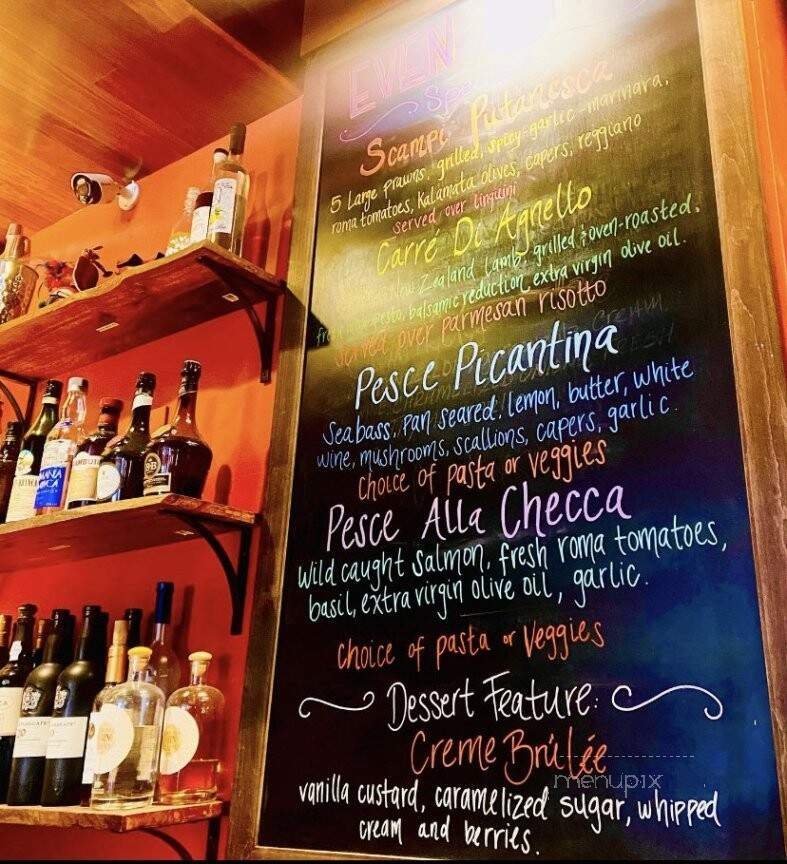 EVEN
Scampi Putanesca
5 Large prawns, grilled, spicy-garlic-marinara,
roma tomatoes, Kalamata olives, capers, reggiano
served over linguini
Carré Di Agnello
Zealand lamb, grilled & oven-roasted,
pesto, balsamic reduction, extra virgin olive oil.
served over parmesan risotto
Pesce Picantina
Seabass, pan seared, lemon, butter, white
wine, mushrooms, scallions, capers, garlic.
choice of pasta or veggies
Pesce Alla Checca
Wild caught salmon, fresh roma tomatoes,
basil, extra virgin olive oil, garlic.
choice of pasta or veggies
Dessert Feature:
Creme Brûlée
vanilla custard, caramelized sugar, whipped
cream and berries.
menupix